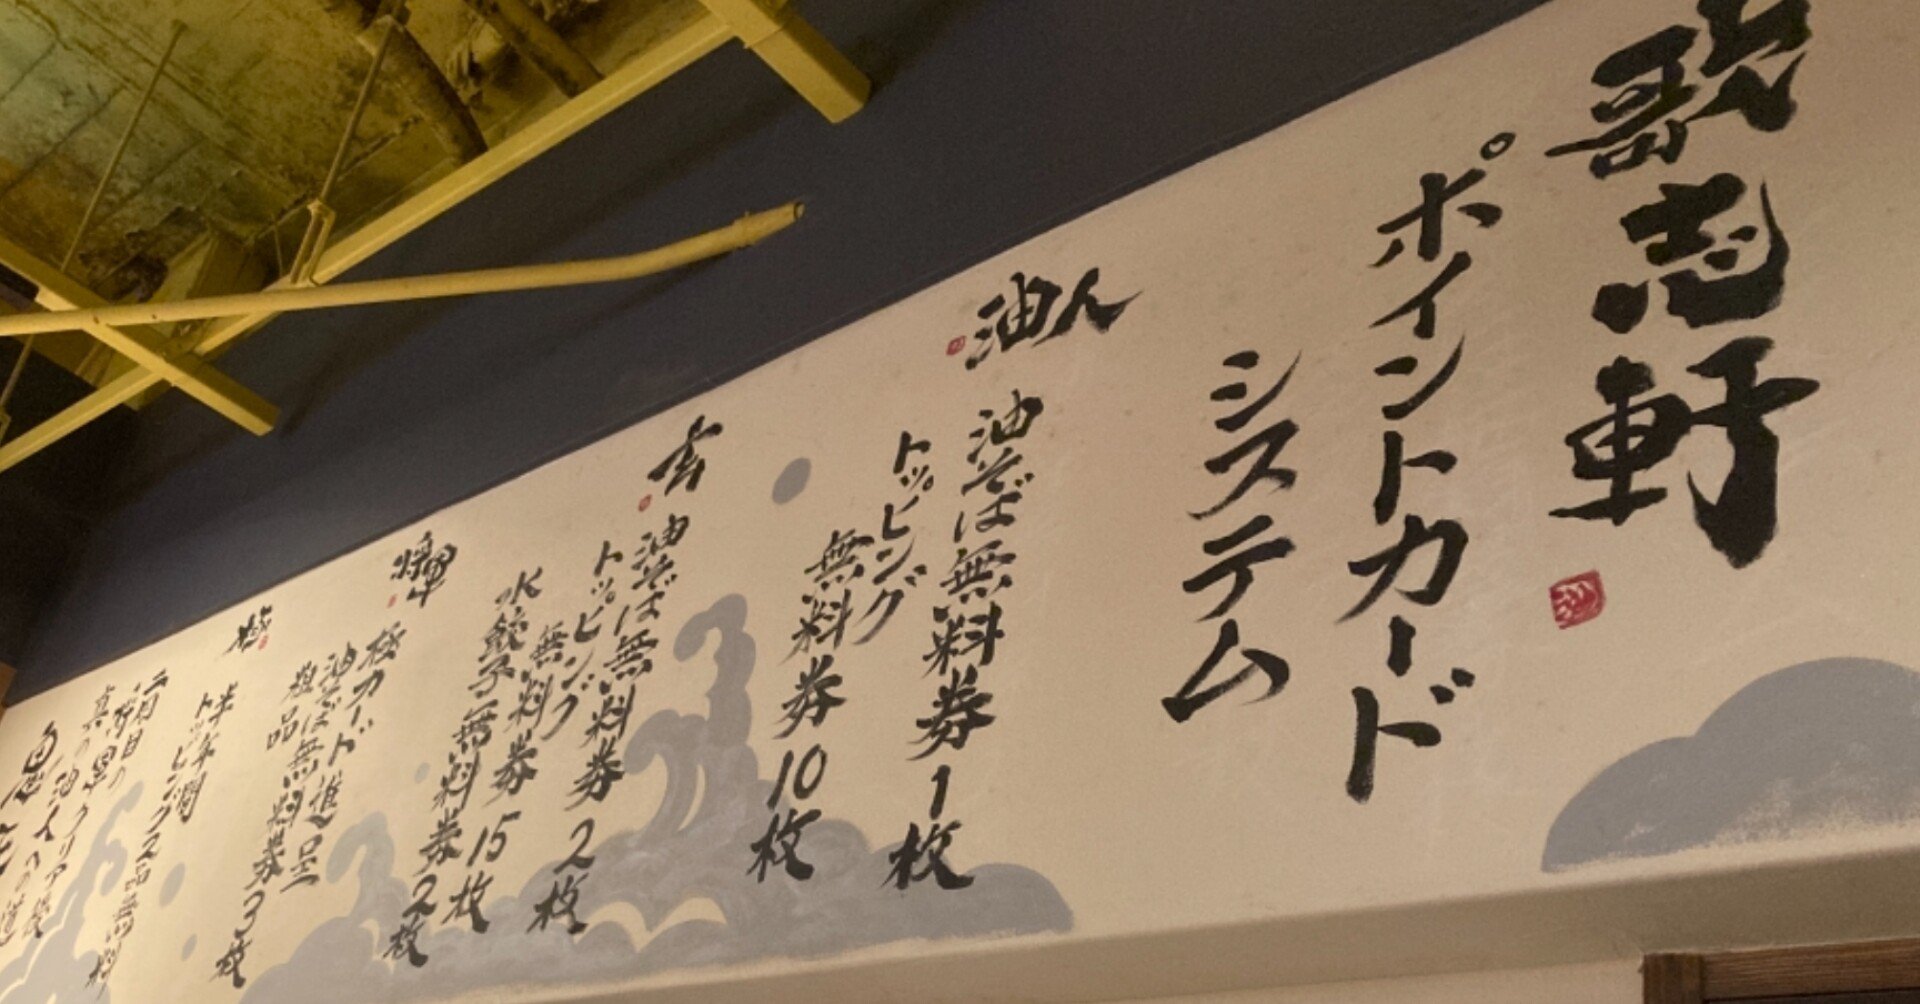 歌志軒
ポイントカード
システム
油人
油そば無料券1枚
トッピング
無料券10枚
玄
油そば無料券2枚
トッピング
無料券15枚
水餃子無料券2枚
将軍
極カード進呈
油そば無料券3枚
粗品
極
半年間
トッピング2品無料
二周目の
将軍クリア後
真の油人への道